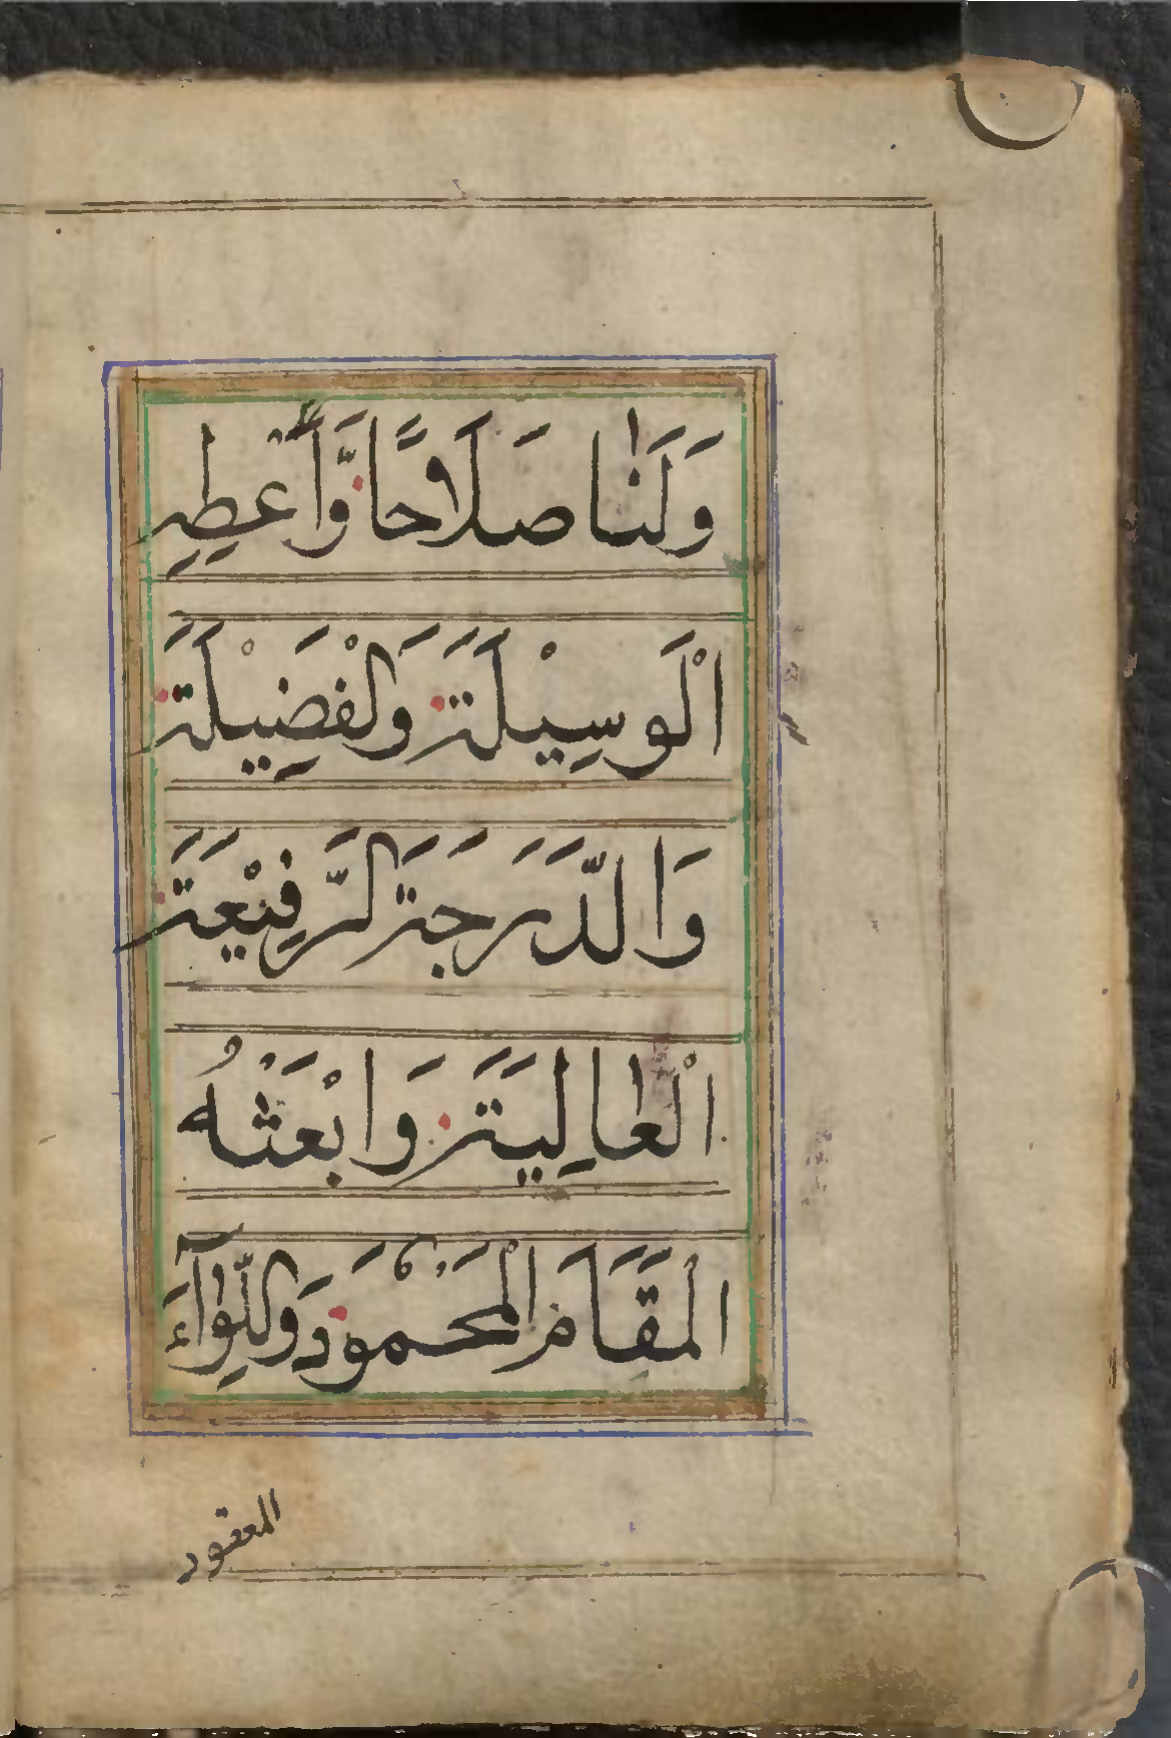 وَلَنَا صَلَاحًا وَّأَعْطِهِ
الْوَسِيْلَةَ وَلْفَضِيْلَةَ
وَالدَّرَجَةَ لرَّفِيْعَةَ
الْعَالِيَةَ وَابْعَثْهُ
الْمَقَامَ الْمَحْمُوْدَ وَللِّوَآءَ
المعقود